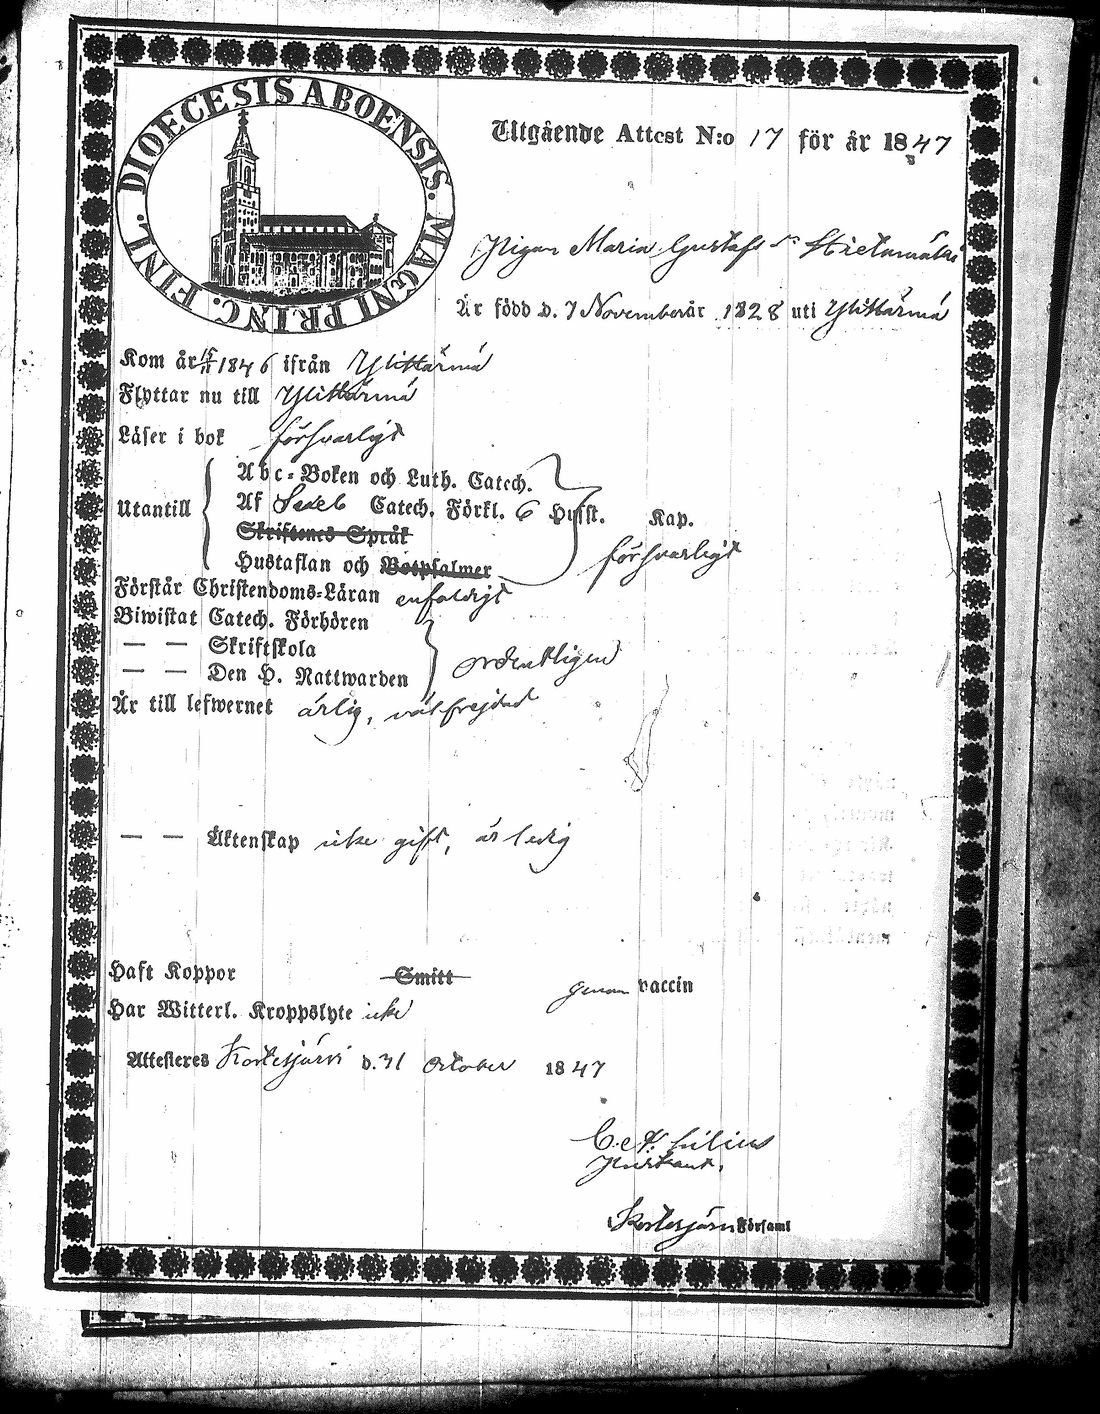 DIOECESIS ABOENSIS. MAGNI PRINC. FINL.
Utgående Attest N:o 17 för år 1847
Pigan Maria Gustafs dr
Är född d. 7 November år 1828 uti Ylitärmä
Kom år 1846 ifrån Ylitärmä
Flyttar nu till Ylitärmä
Läser i bok försvarligt
Utantill
Abc-Boken och Luth. Catech.
Af Sedeb Catech. Förkl. 6 Hufst. Kap.
Skriftenes Språk
Hustaflan och Botpsalmer
försvarligt
Förstår Christendoms-Läran enfaldigt
Biwistat Catech. Förhören
— — Skriftskola
— — Den H. Nattwarden
ordentligen
Är till lefwernet ärlig, välfrejdad
— — Äktenskap icke gift, är ledig
Haft Koppor Smitt genom vaccin
Har Witterl. Kroppslyte icke
Attesteres Kortesjärvi d. 31 October 1847
Kortesjärvi Församl